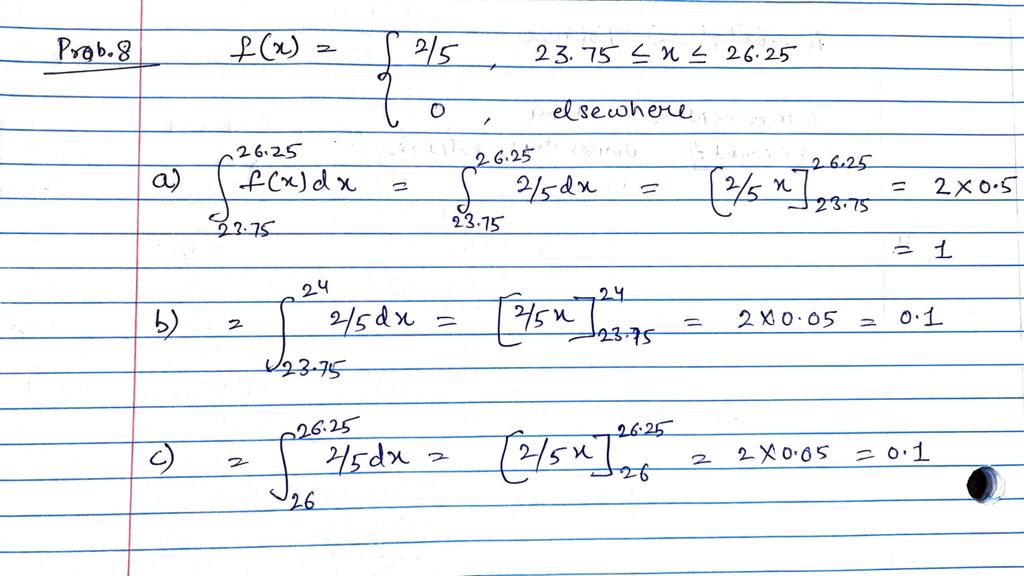 Prob. 8 f(x) = { 2/5 , 23.75 ≤ x ≤ 26.25
0 , elsewhere
a) ∫_{23.75}^{26.25} f(x) dx = ∫_{23.75}^{26.25} 2/5 dx = [2/5 x]_{23.75}^{26.25} = 2 × 0.5
= 1
b) = ∫_{23.75}^{24} 2/5 dx = [2/5 x]_{23.75}^{24} = 2 × 0.05 = 0.1
c) = ∫_{26}^{26.25} 2/5 dx = [2/5 x]_{26}^{26.25} = 2 × 0.05 = 0.1